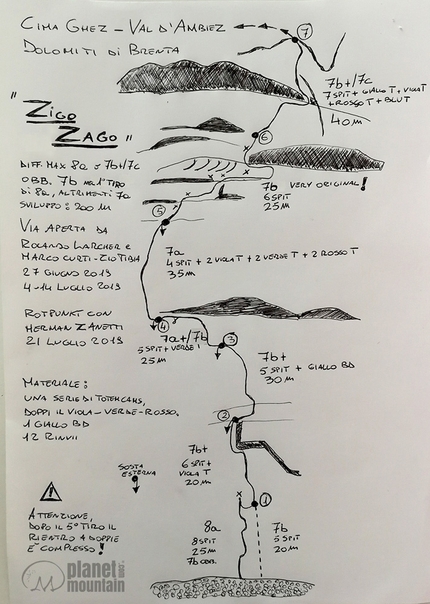 CIMA GHEZ – VAL D'AMBIEZ
DOLOMITI DI BRENTA
7
"ZIGO
ZAGO"
7b+/7c
7 SPIT + GIALLO T + VIOLA T
+ ROSSO T + BLU T
40 m
6
DIFF. MAX 8a o 7b+/7c
OBB. 7b NEL 1° TIRO
DI 8a, ALTRIMENTI 7a
SVILUPPO: 200 m
7b VERY ORIGINAL!
6 SPIT
25 m
5
VIA APERTA DA
ROLANDO LARCHER E
MARCO CURTI - ZIO TIBIA
27 GIUGNO 2019
4-14 LUGLIO 2019
7a
4 SPIT + 2 VIOLA T + 2 VERDE T + 2 ROSSO T
35 m
ROTPUNKT CON
HERMAN ZANETTI
21 LUGLIO 2019
4
7a+/7b
5 SPIT + VERDE T
25 m
3
7b+
5 SPIT + GIALLO BD
30 m
MATERIALE:
UNA SERIE DI TOTEMCAMS,
DOPPI IL VIOLA-VERDE-ROSSO.
1 GIALLO BD
12 RINVII
2
7b+
6 SPIT +
VIOLA T
20 m
SOSTA
ESTERNA
1
!
ATTENZIONE,
DOPO IL 5° TIRO IL
RIENTRO A DOPPIE
È COMPLESSO!
8a
8 SPIT
25 m
7b OBB.
7b
5 SPIT
20 m
planet
mountain
.com